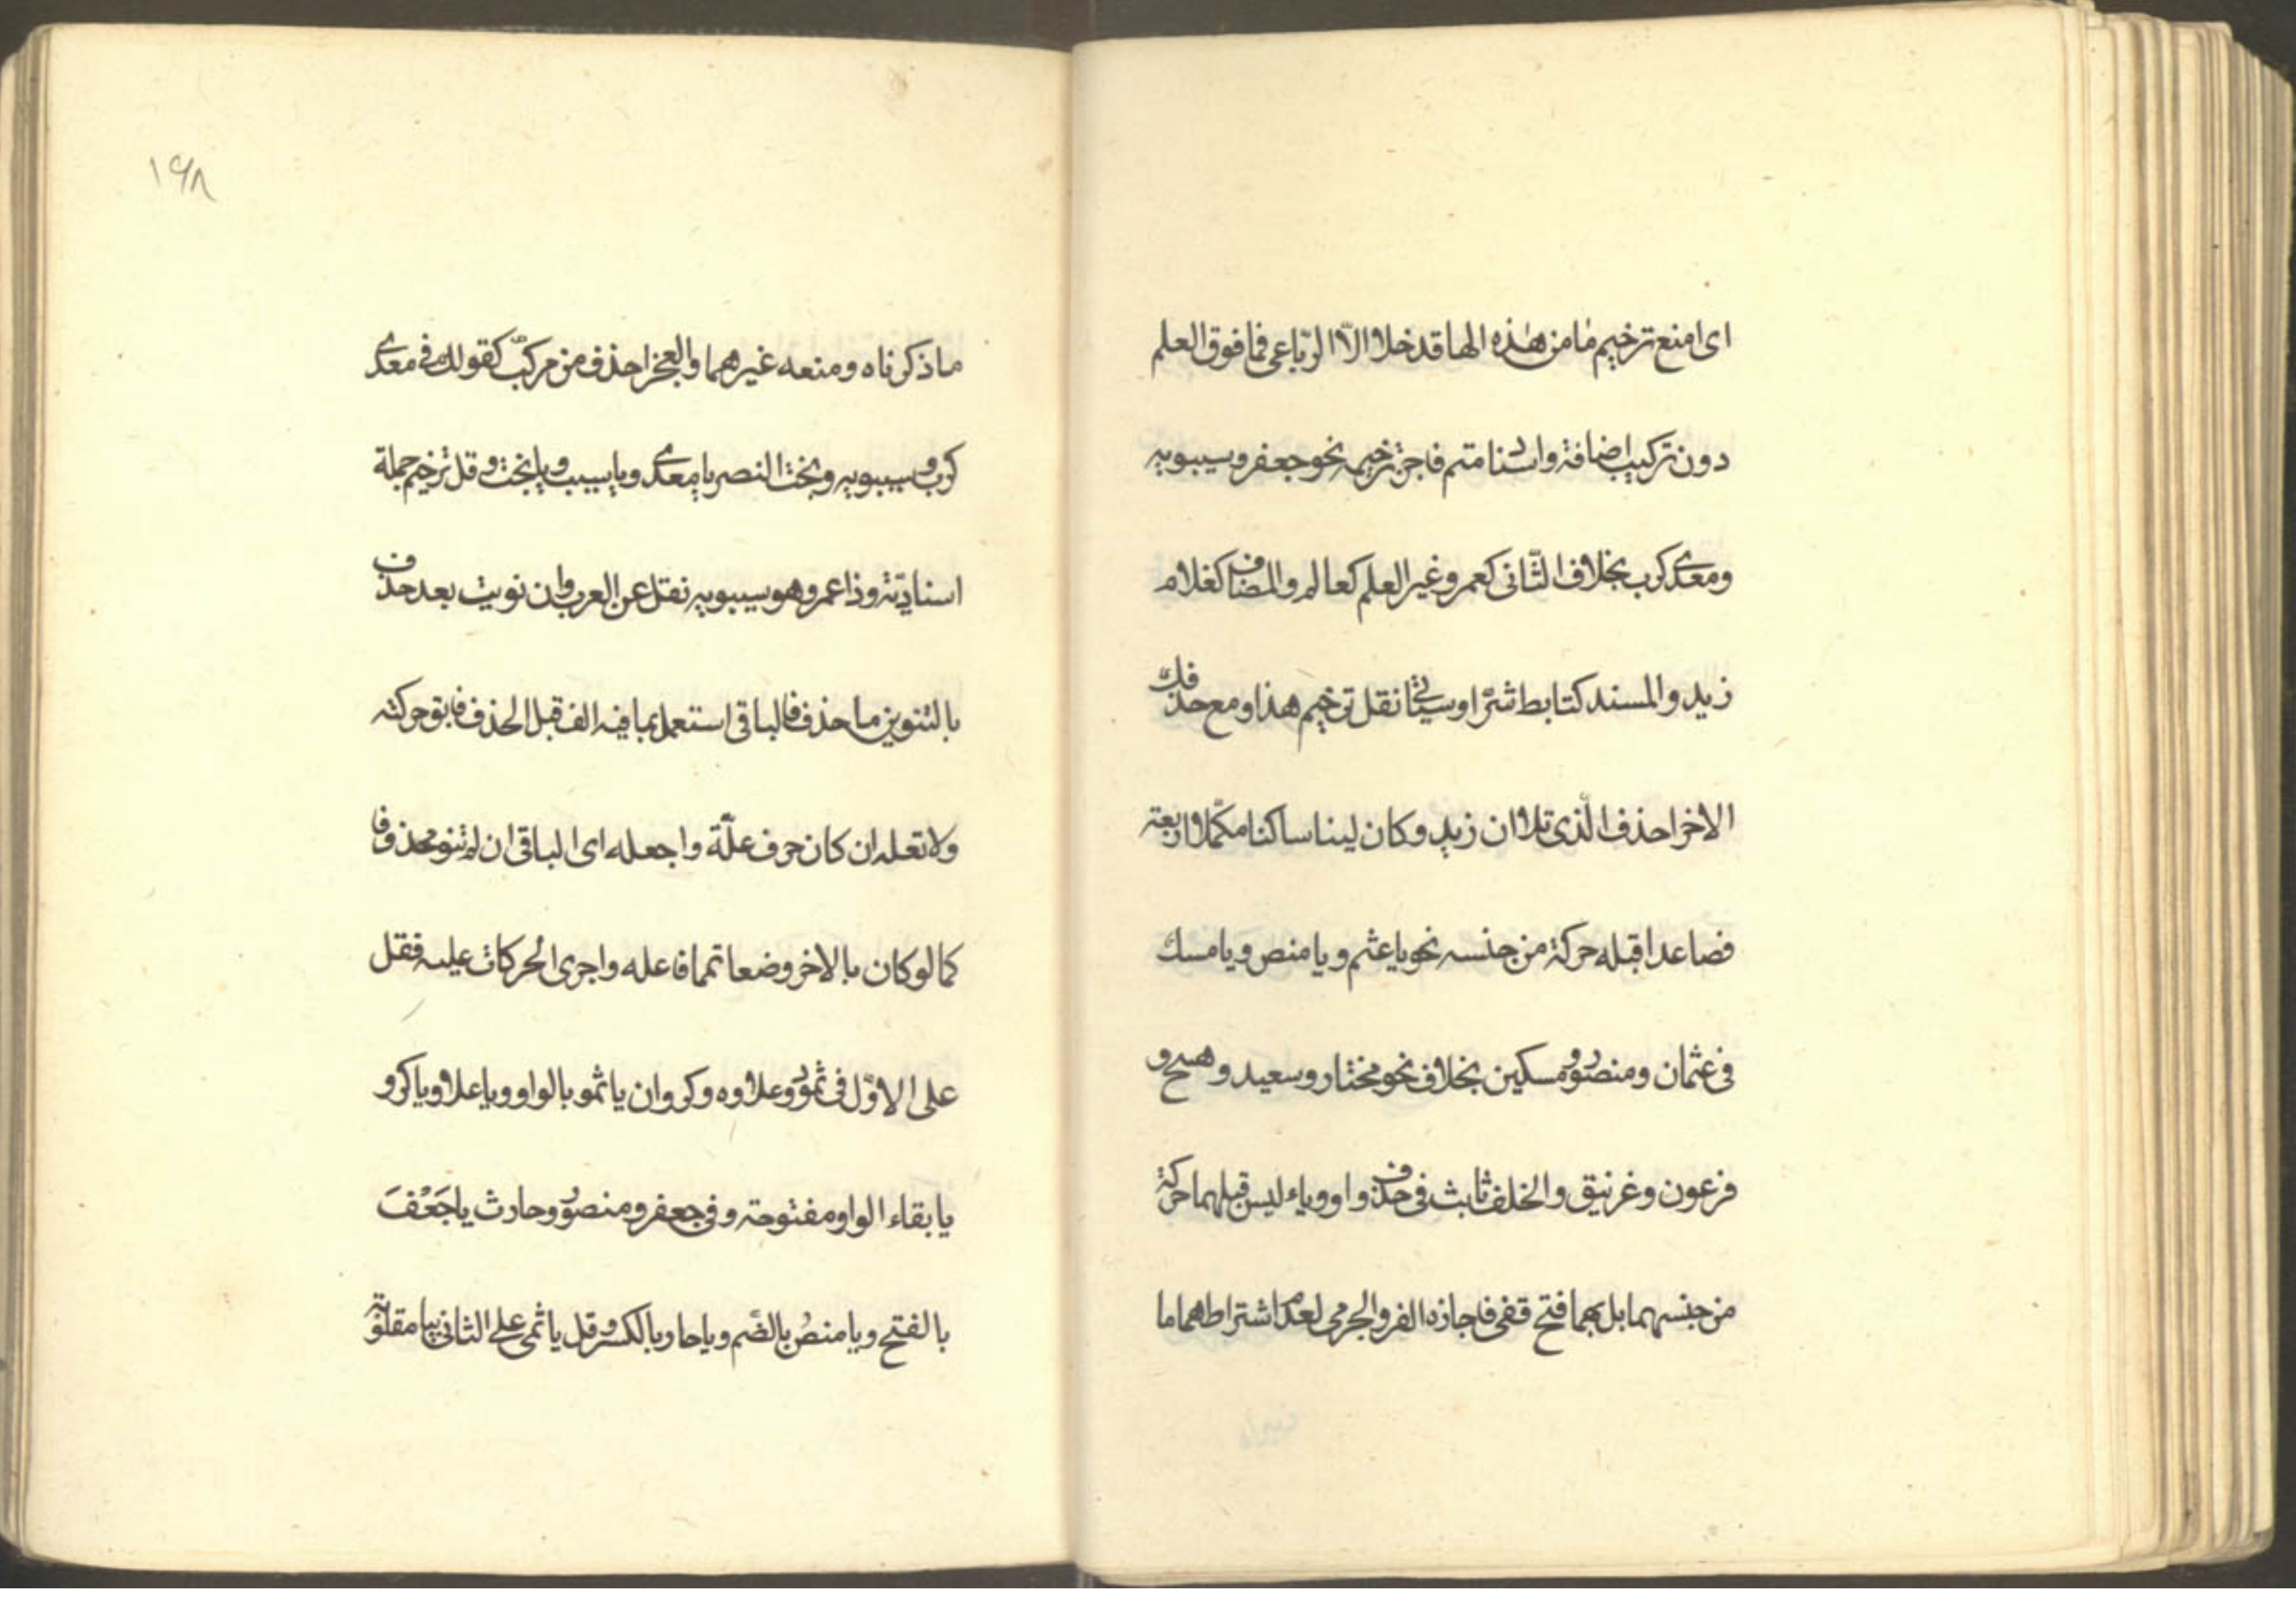 اى امنع ترخيم ما من هذه الها قد خلا الّا الرّباعى فما فوق العلم
دون تركيب اضافة واسنا دمتم فاجز ترخيمه نحو جعفر وسيبويه
ومعدى كرب بخلاف الثّانى كعمر وغير العلم كعالم والمضاف كغلام
زيد والمسند كتابط شرّا وسياتى نقل ترخيم هذا ومع حذفك
الاخر احذف الّذى تلا ان زيد وكان لينا ساكنا مكمّلا اربعة
فصاعدا قبله حركة من جنسه نحو يا عثم ويا منص ويا مسك
فى عثمان ومنصور ومسكين بخلاف نحو مختار وسعيد وهبيخ و
فرعون وغرنيق والخلف ثابت فى حذف واو وياء ليس قبلهما حركة
من جنسهما بل بهما فتح قفى فاجازه الفر والجرمى لعدم اشتراطهما ما
١٩٨
ما ذكرناه ومنعه غيرهما والعجز احذف من مركبّ كقولك فى معدى
كرب وسيبويه وبخت النصر يا معدى ويا سيب ويا بخت وقل ترخيم جملة
اسناديّة وذا عمرو وهو سيبويه نقل عن العرب وان نويت بعد حذف
بالتنوين ما حذف فالباقى استعمل بما فيه الف قبل الحذف فابق حركته
ولا تعله ان كان حرف علّة واجعله اى الباقى ان لم تنو محذوفا
كما لو كان بالاخر وضعا تمما فاعله واجرى الحركات عليه فقل
على الاوّل فى ثمود وعلاوه وكروان يا ثمو بالواو ويا علاو يا كرو
يا بقاء الواو مفتوحة وفى جعفر ومنصور وحارث يا جَعْفَ
بالفتح ويا منصُ بالضّم ويا حار بالكسر وقل يا ثمى على الثانى بيا مقلوبة